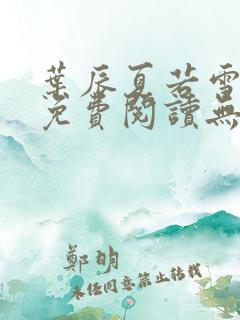 葉辰夏若雪
免費閱讀無
鄭明
未经同意禁止转载